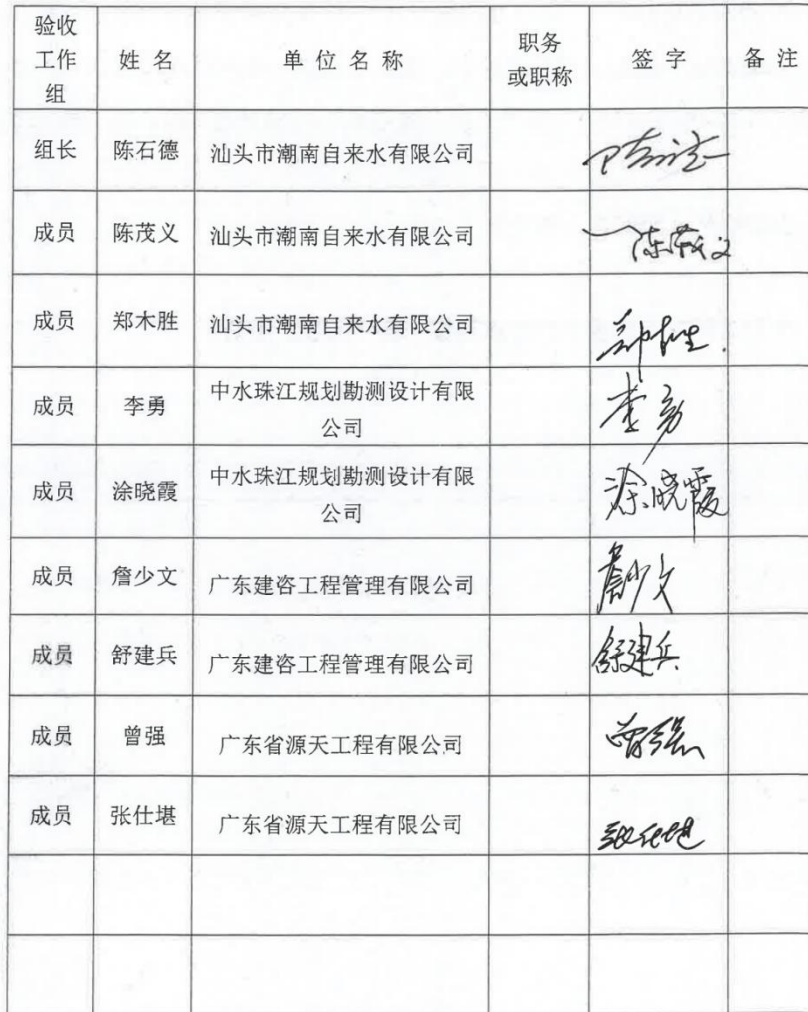 验收
工作
组
姓 名
单 位 名 称
职务
或职称
签 字
备 注
组长 陈石德 汕头市潮南自来水有限公司
成员 陈茂义 汕头市潮南自来水有限公司 陈茂义
成员 郑木胜 汕头市潮南自来水有限公司
成员 李勇 中水珠江规划勘测设计有限
公司
李勇
成员 涂晓霞 中水珠江规划勘测设计有限
公司
涂晓霞
成员 詹少文 广东建咨工程管理有限公司 詹少文
成员 舒建兵 广东建咨工程管理有限公司 舒建兵
成员 曾强 广东省源天工程有限公司 曾强
成员 张仕堪 广东省源天工程有限公司 张仕堪